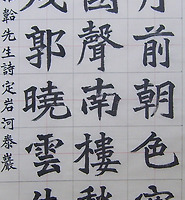 前朝色
聲南樓
郭曉雲
先生詩定岩河泰巖